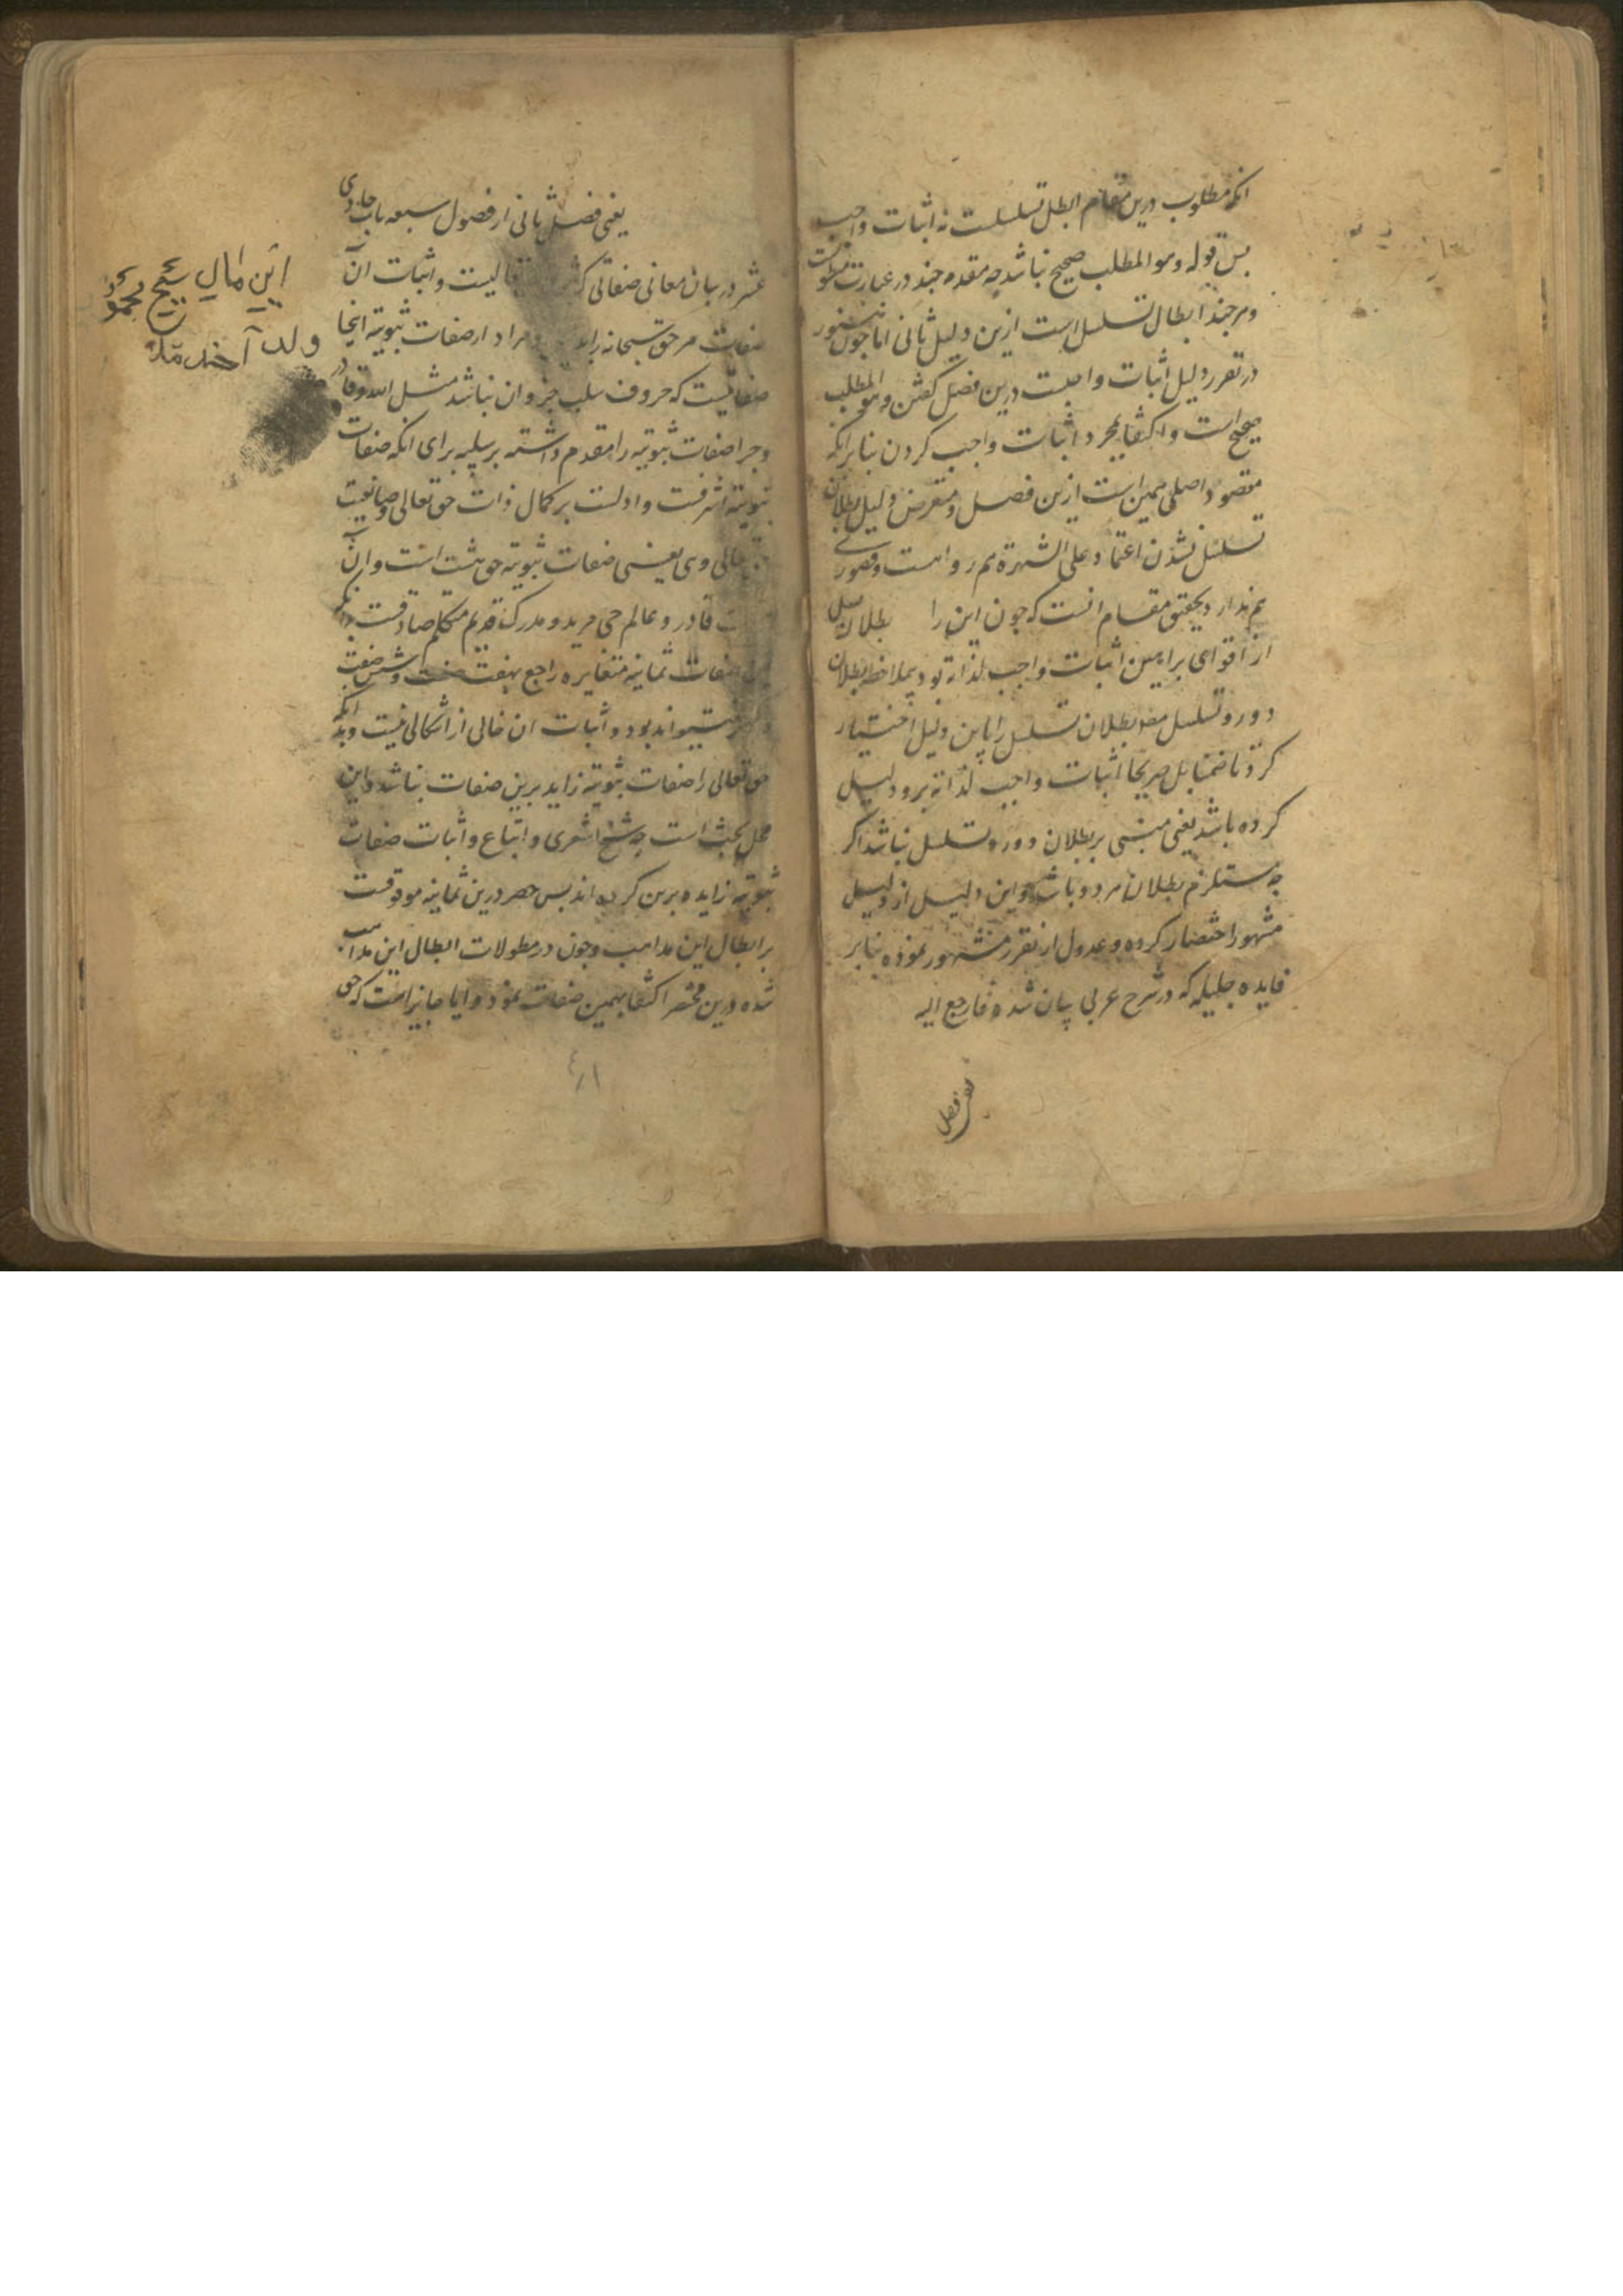 انکه مطلوب درین مقام ابطل تسلسلست نه اثبات واجب
پس قوله وهو المطلب صحیح نباشد چه مقدمه چند در عبارت مطویست
و هرچند ابطال تسلسل است ازین دلیل ثانی اما چون
در تقریر دلیل اثبات واجبست درین فصل کفتن وهو المطلب
صحیح است و اکتفا بمجرد اثبات واجب کردن بنا برانکه
مقصود اصلی همین است ازین فصل و متعرض دلیل بطلان
تسلسل نشدن اعتماد علی الشهرة هم رواست و قصوری
هم ندارد و تحقیق مقام انست که چون این را بطلان تسلسل
از اقوای براهین اثبات واجب لذاته بود بملاحظه بطلان
دور و تسلسل مص بطلان تسلسل را باین دلیل اختیار
کرد تا ضمنا بل صریحا اثبات واجب لذاته برو دلیل
کرده باشد یعنی مبنی بر بطلان دور و تسلسل نباشد اکر
چه مستلزم بطلان هر دو باشد و این دلیل از دلیل
مشهور اختصار کرده و عدول از تقریر مشهور نموده بنا بر
فایده جلیله که در شرح عربی بیان شده فارجع الیه
یعنی فصل
یعنی فصل ثانی از فصول سبعه باب حادی
عشر در بیان معانی صفاتی که تعالیست و اثبات آن
صفات مر حق سبحانه را و مراد از صفات ثبوتیه اینجا
صفاتیست که حروف سلب جزو ان نباشد مثل الله و قادر
و چرا صفات ثبوتیه را مقدم داشته بر سلبیه برای انکه صفات
ثبوتیه اشرفست و ادلست بر کمال ذات حق تعالی و صانعیت
تعالی وی یعنی صفات ثبوتیه حق هشت است و ان
قادر و عالم حی مرید و مدرک قدیم متکلم صادقست
صفات ثمانیه متغایره راجع بهفت صفت و شش صفت
میتواند بود و اثبات ان خالی از اشکالی نیست و بدانکه
حق تعالی را صفات ثبوتیه زاید برین صفات نباشد و این
محل بحث است چه شیخ اشعری و اتباع و اثبات صفات
ثبوتیه زایده برین کرده اند پس حصر درین ثمانیه موقوفست
بر ابطال این مذاهب و چون در مطولات ابطال این مذاهب
شده درین مختصر اکتفا بهمین صفات نمود و ایا جایز است که حق
این مال شیخ محمود
ولد آخند ملا